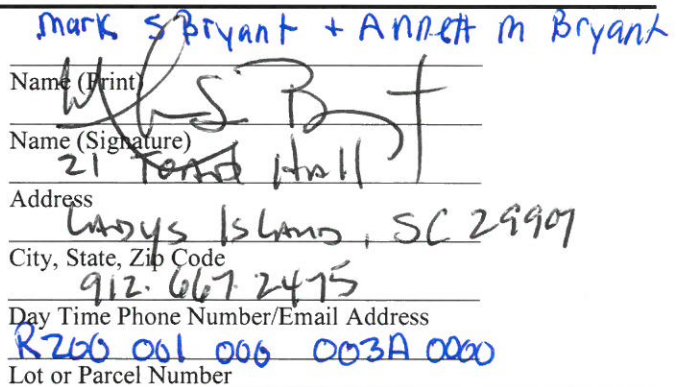 Mark S Bryant + Annett M Bryant
Name (Print)
Name (Signature)
21 Toad Hall
Address
LADYS ISLAND, SC 29907
City, State, Zip Code
912.667.2475
Day Time Phone Number/Email Address
R200 001 000 003A 0000
Lot or Parcel Number